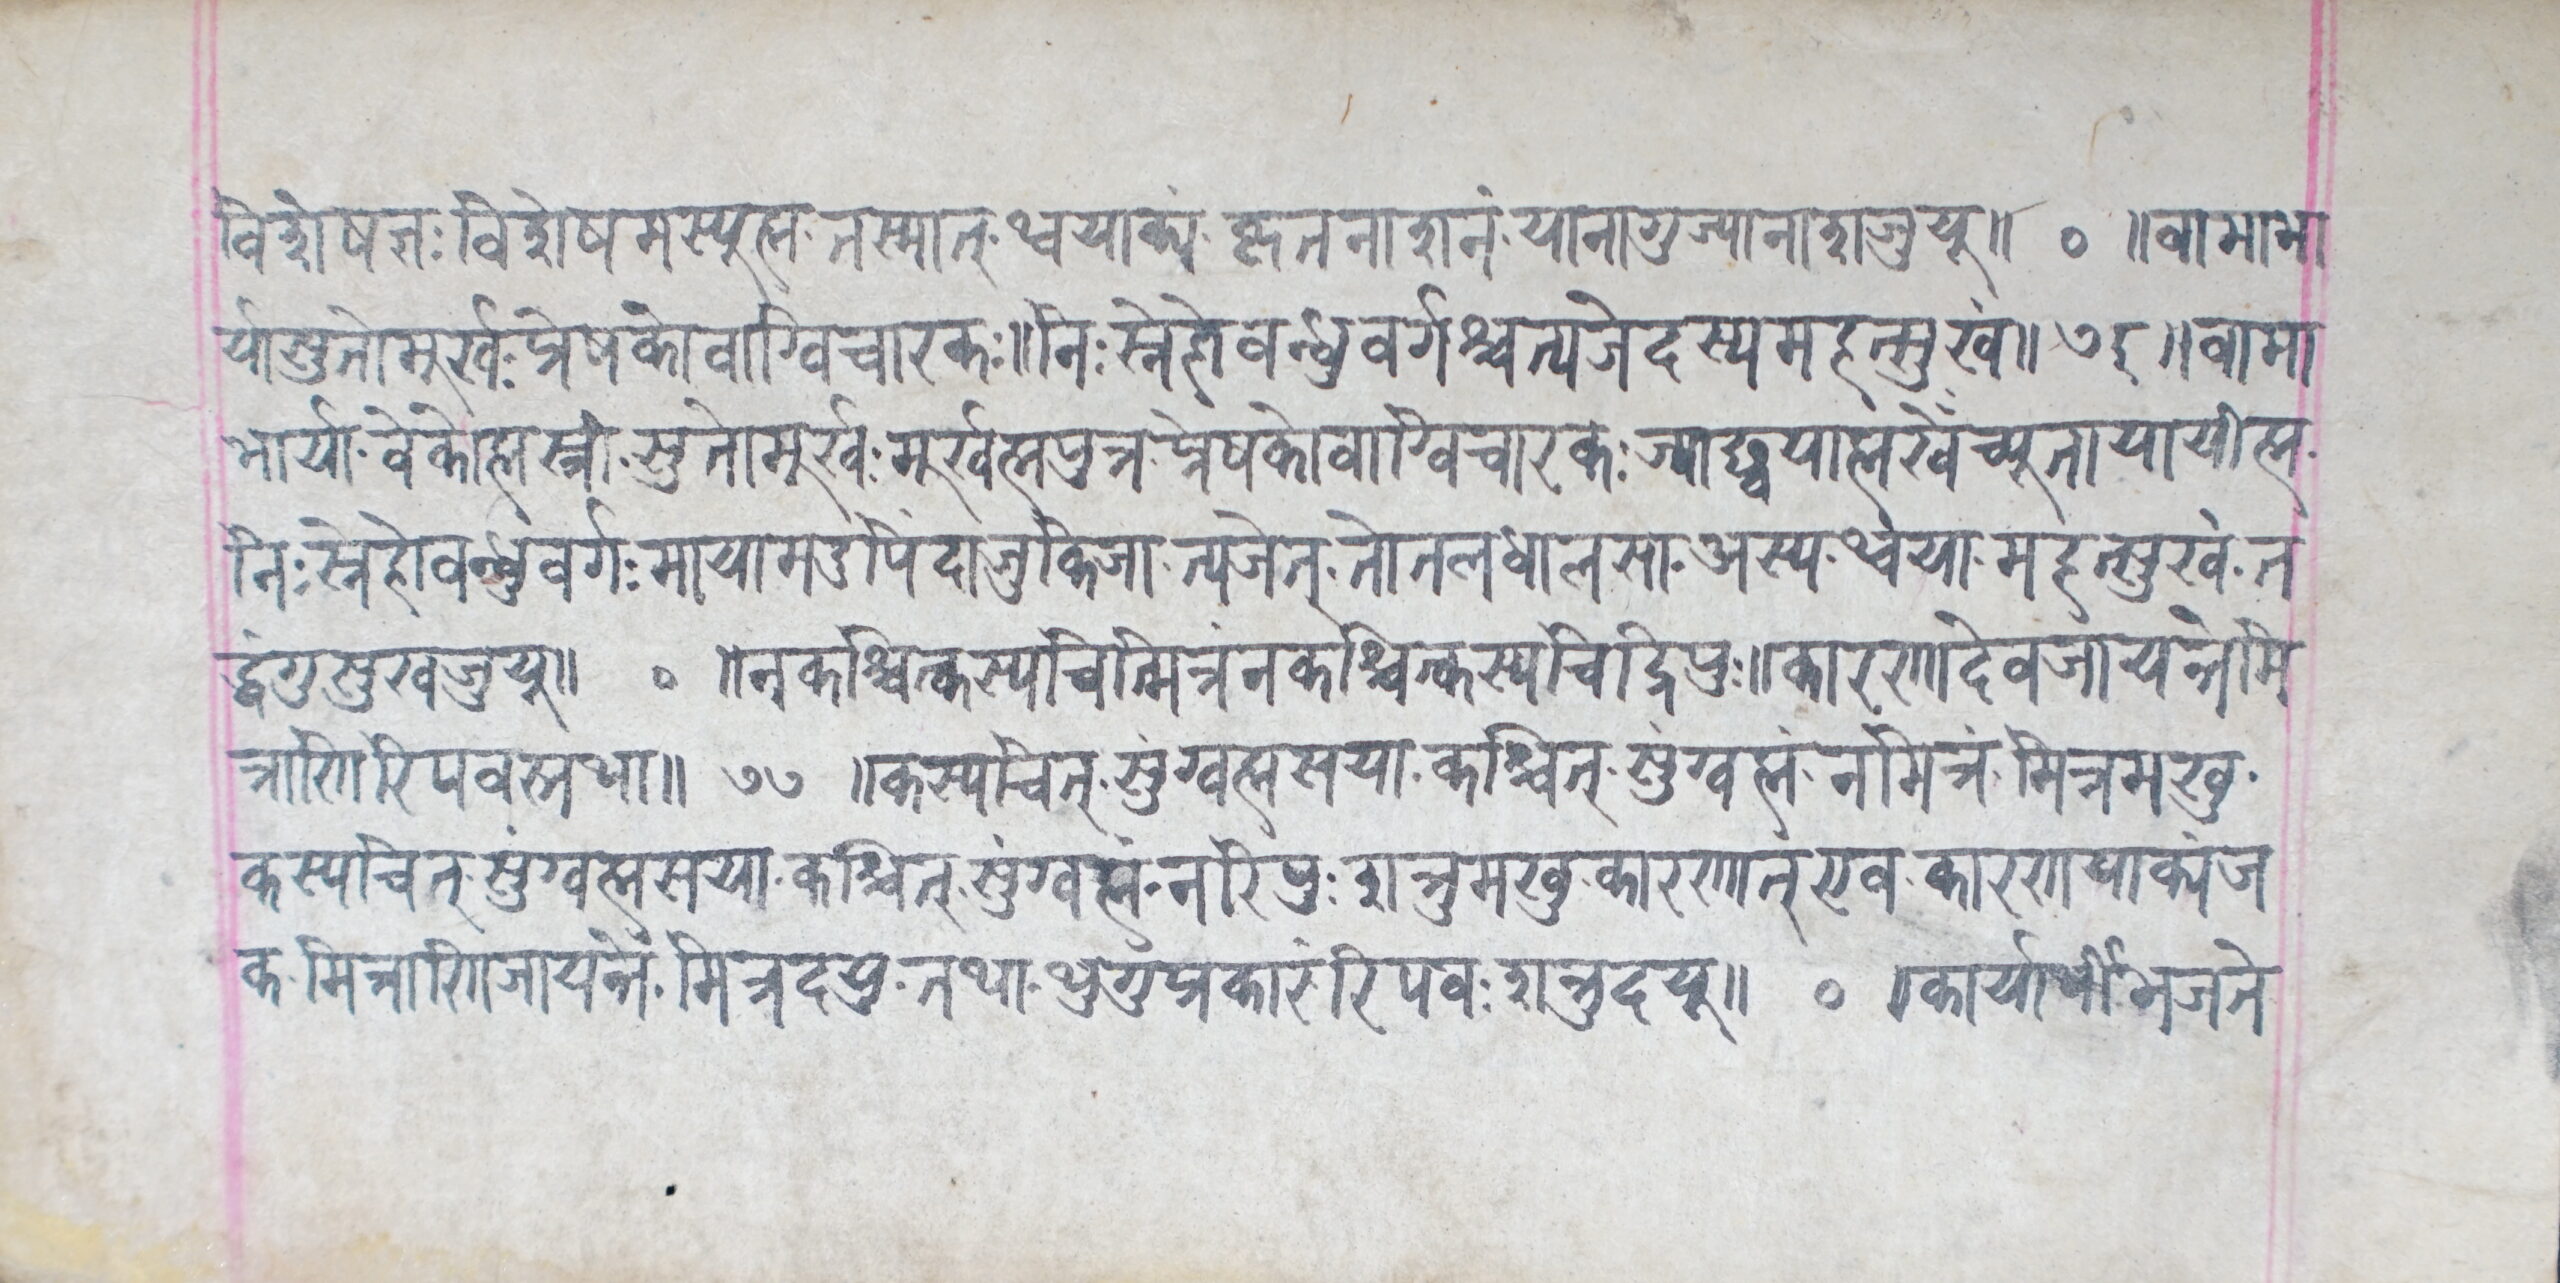 विशेषज्ञः विशेषमस्यूह्म. तस्मात्. थ्वयाक्यं. कृतनाशनं. यानागुज्यानाशजुयू॥ ० ॥वामाभा
र्यासुतोमूर्खः प्रेषकोवाग्विचारकः॥निःस्नेहोवन्धुवर्गश्चत्यजेदस्यमहत्सुखं॥ ७६ ॥वामा
भार्या. वेकोह्मस्त्री. सुतोमूर्खः मूर्खह्मपुत्र. प्रेषकोवाग्विचारकः ज्याछ्वयाह्मंखँच्यूतायायीह्म.
निःस्नेहोवन्धुवर्गः मायामदुपिंदाजुकिजा. त्यजेत्. तोतलधालसा. अस्य. थ्वया. महत्सुखं. त
द्धंगुसुखजुयू॥ ० ॥नकश्चित्कस्यचिन्मित्रंनकश्चित्कस्यचिद्रिपुः॥कारणादेवजायन्तेमि
त्राणिरिपवस्तथा॥ ७७ ॥कस्यचित्. सुंग्वह्मसया. कश्चित्. सुंग्वह्मं. नमित्रं. मित्रमखु.
कस्यचित्. सुंग्वह्मसया. कश्चित्. सुंग्वह्मं. नरिपुः शत्रुमखु. कारणात्एव. कारणयाक्यंज
क. मित्राणिजायन्ते. मित्रदयु. तथा. थुगुप्रकारं. रिपवः शत्रुदयू॥ ० ॥कार्यार्थीभजते